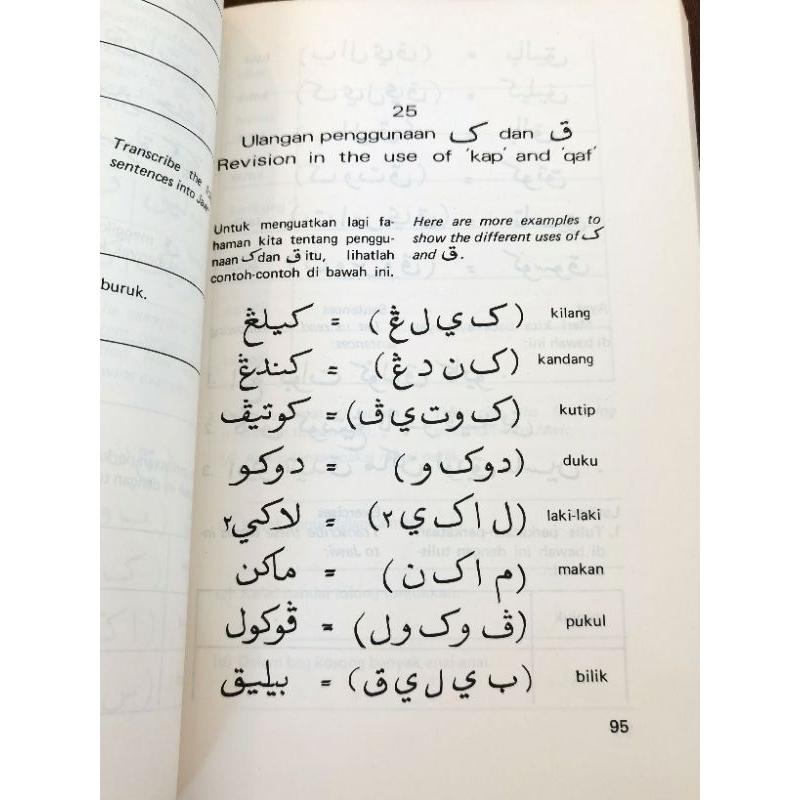 Transcribe the
sentences into Jawi
buruk.
25
Ulangan penggunaan ک dan ق
Revision in the use of 'kap' and 'qaf'
Untuk menguatkan lagi fa-
haman kita tentang penggu-
naan ک dan ق itu, lihatlah
contoh-contoh di bawah ini.
Here are more examples to
show the different uses of ک
and ق.
kilang (ک ي ل ڠ) = کيلڠ
kandang (ک ن د ڠ) = کندڠ
kutip (ک و ت ي ڤ) = کوتيڤ
duku (د و ک و) = دوکو
laki-laki (ل ا ک ي ٢) = لاکي٢
makan (م ا ک ن) = ماکن
pukul (ڤ و ک و ل) = ڤوکول
bilik (ب ي ل ي ق) = بيليق
95